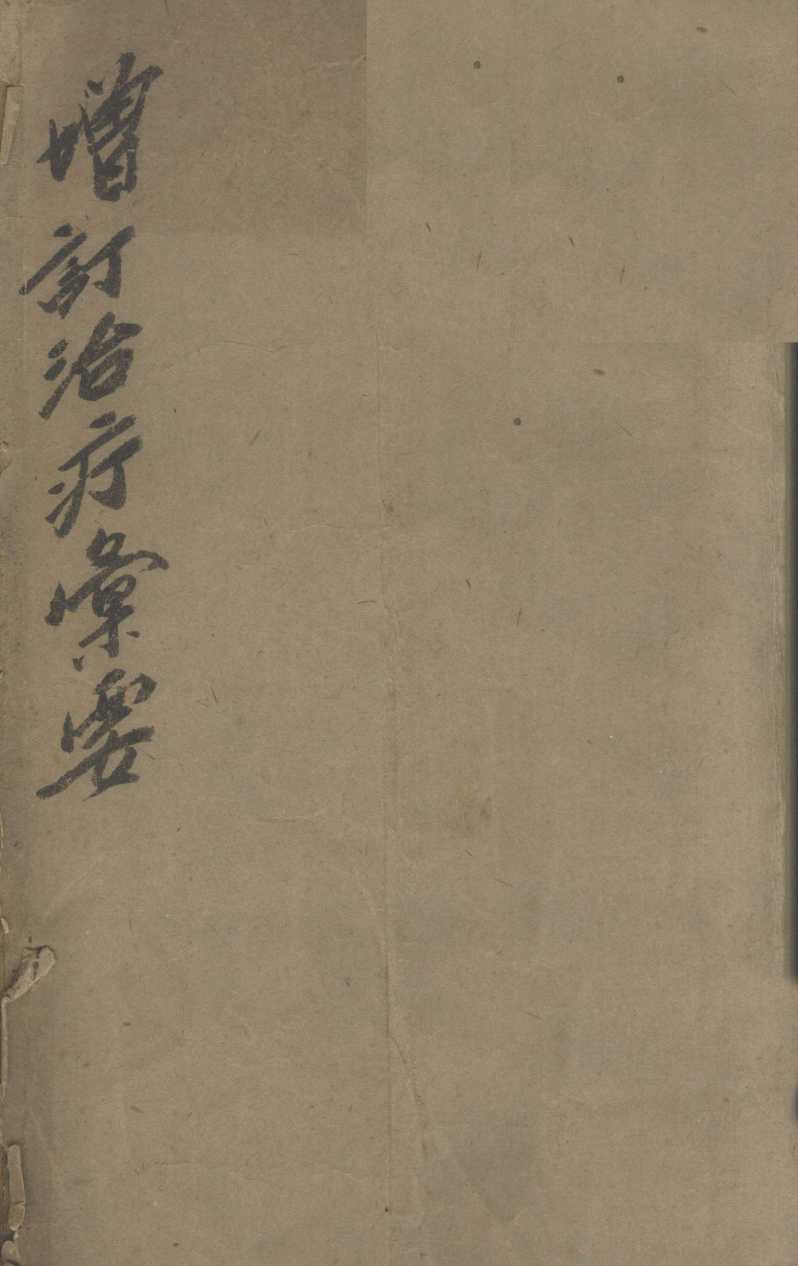 增訂治疔彙要